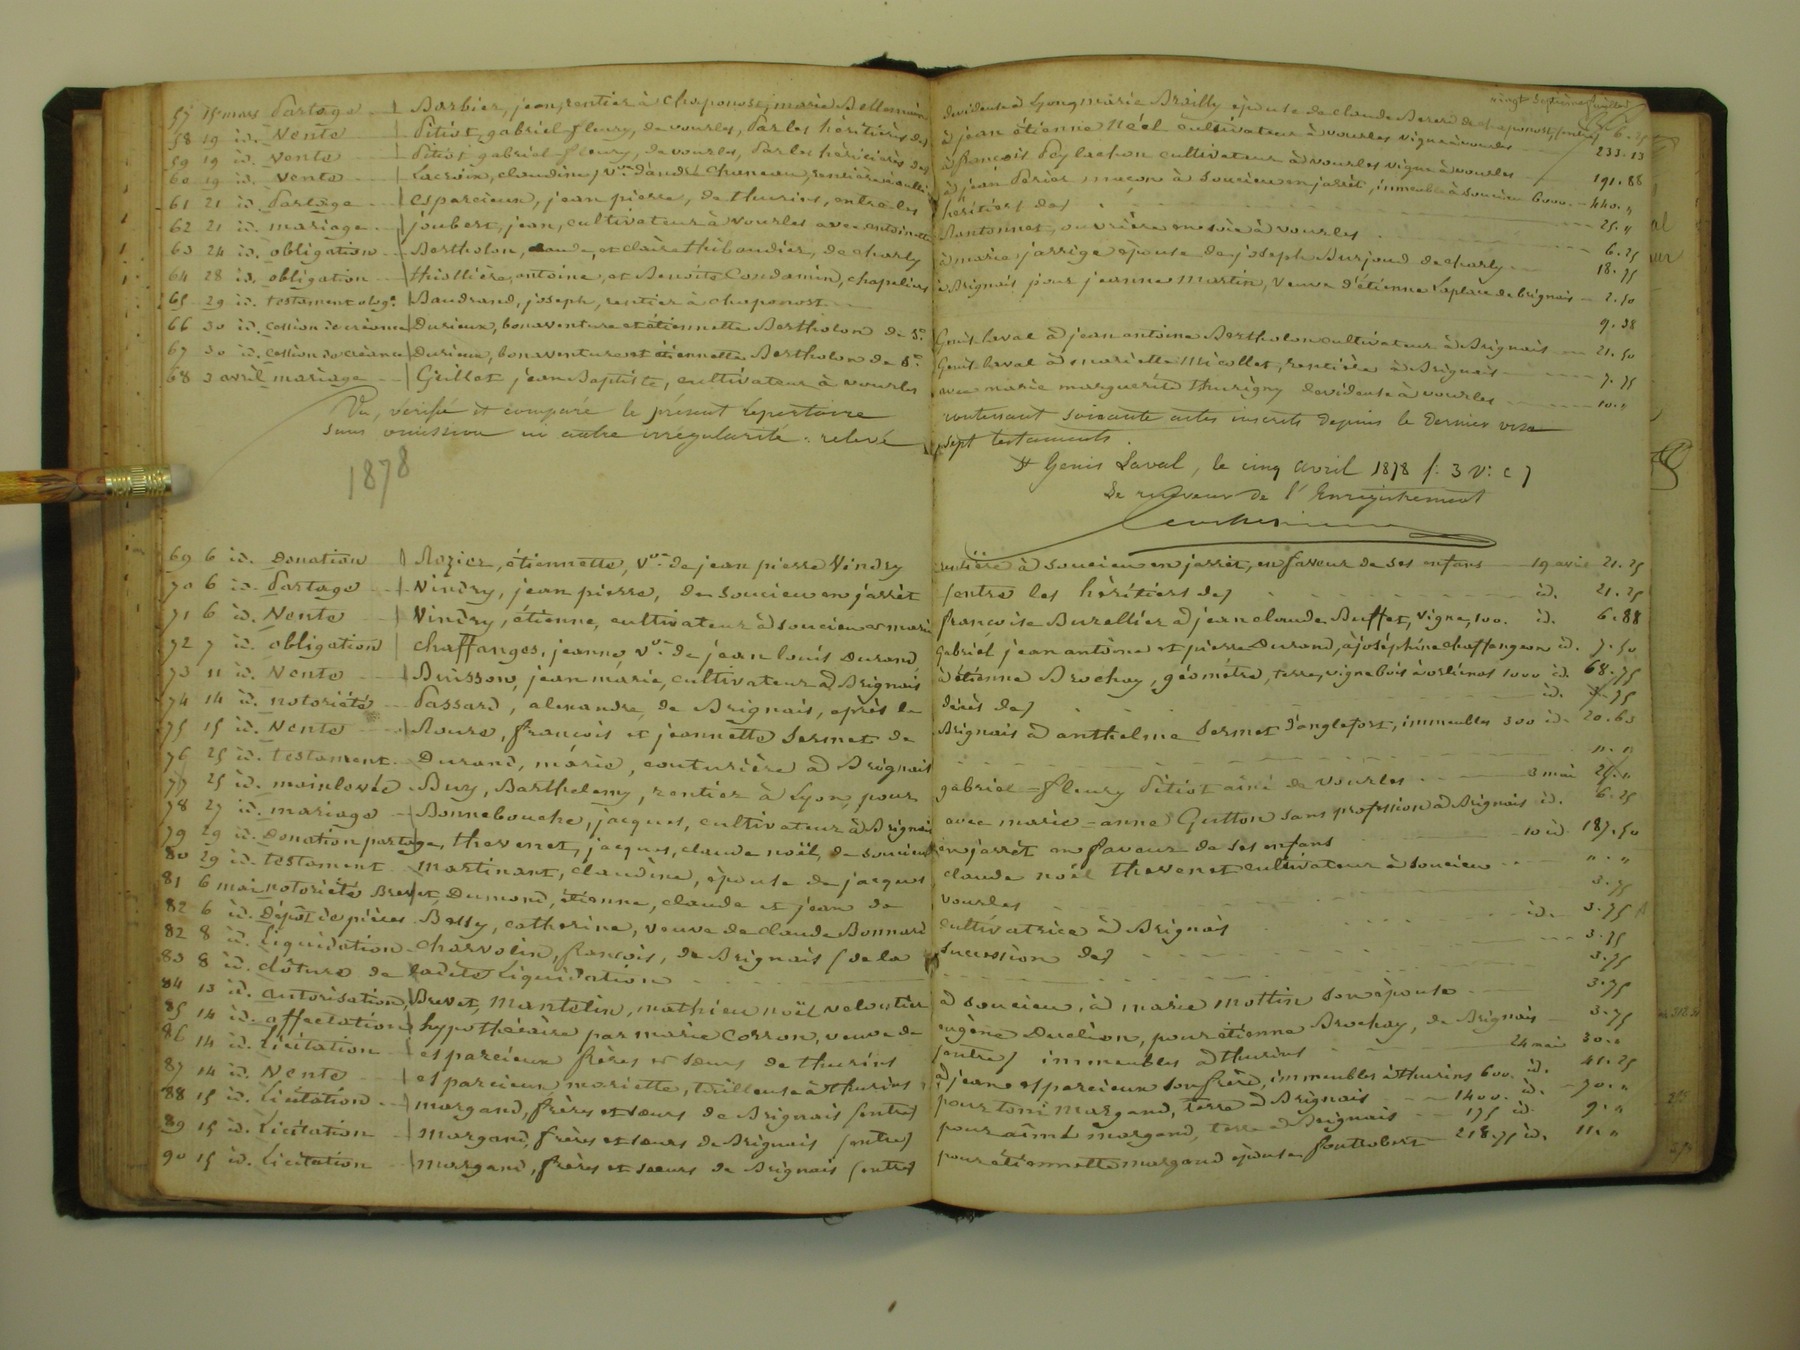 vingt septième feuillet
57 15 mars Partage Barbier, jean, rentier à Chaponost, marie Bellemain devideuse à Lyon, marie Brailly épouse de claude Bererd de chaponost, (entre) 6.25
58 19 id. Vente Pitiot, gabriel fleury, de vourles, Par les héritiers des à jean étienne Néel cultivateur à vourles vigne à vourles 233.13
59 19 id. Vente Pitiot gabriel fleury, de vourles, Par les héritiers des à françois Peylachon cultivateur à vourles vigne à vourles 191.88
60 19 id. Vente Lacroix, claudine, Vve d'andré Chaneau, rentière à jean Périer maçon à Soucieu en jarrêt, immeuble à Soucieu 6000. 440."
61 21 id. Partage esparcieux, jean pierre, de thurins, entre les héritiers des 25."
62 21 id. mariage joubert, jean, cultivateur à vourles avec antoinette Rantonnet, ouvrière en soie à vourles 6.25
63 24 id. obligation Bertholon, claude, et claire thibaudier, de charly à marie jarrige épouse de joseph Burjoud de charly 18.75
64 28 id. obligation thiollière, antoine, et Benoite Condamin, chapeliers à Brignais, pour jeanne Martin, veuve d'étienne Laplace de brignais 2.50
65 29 id. testament olog. Baudrand, joseph, rentier à chaponost 9.38
66 30 id. cession de créance Durieux, bonaventure et étiennette Bertholon de St. Genis laval à jean antoine Bertholon cultivateur à Brignais 21.50
67 30 id. cession de créance Durieux, bonaventure et étiennette Bertholon de St. Genis laval à mariette Micollet, rentière à Brignais 7.75
68 3 avril mariage Guillot jean Baptiste, cultivateur à vourles avec marie marguerite thurigny devideuse à vourles 10."
Vu, vérifié et comparé le présent repertoire contenant soixante actes inscrits depuis le dernier visa
sans omission ni autre irrégularité. relevé sept testaments.
St Genis Laval, le cinq avril 1878 f. 3 V. c 7
1878
Le receveur de l'Enregistrement
69 6 id. Donation Rozier, étiennette, Vve de jean pierre Vindry rentière à soucieu en jarrêt, en faveur de ses enfans 19 avril 21.25
70 6 id. Partage Vindry, jean pierre, de soucieu en jarrêt (entre les héritiers de) id. 21.25
71 6 id. Vente Vindry, étienne, cultivateur à soucieu et marie françoise Buzellier à jean claude Buffet, vigne, 100. id. 6.88
72 7 id. obligation chaffanges, jeanne, Vve de jean louis Durand, gabriel jean antoine et pierre Durand, à joséphine chaffangeon id. 7.50
73 11 id. Vente Buisson, jean marie, cultivateur à Brignais à étienne Brochay, géomètre, terre, vigne bois à orliénas 1000 id. 68.75
74 14 id. notoriété Passard, alexandre, de Brignais, après le décès de) id. 3.75
75 15 id. Vente Roure, françois et jeannette Sermet de Brignais à anthelme Sermet d'anglefort, immeubles 300 id. 20.63
76 25 id. testament Durand, marie, couturière à Brignais ".."
77 25 id. mainlevée Buy, Barthelemy, rentier à Lyon, pour gabriel-fleury Pitiot ainé de vourles 3 mai 25."
78 27 id. mariage Bonnebouche, jacques, cultivateur à Brignais avec marie-anne Gutton sans profession à Brignais id. 6.25
79 29 id. Donation partage, thevenet, jacques, claude noël, de soucieu en jarrêt en faveur de ses enfans 10 id 187.50
80 29 id. testament martinant, claudine, épouse de jacques claude noël thevenet cultivateur à soucieu "."
81 6 mai notoriété Brevet, Dumond, étienne, claude et jean de vourles 3.75
82 6 id. Dépôt de pièces Bessy, catherine, veuve de claude Bonnard cultivatrice à Brignais id. 3.75
82 8 id. Liquidation Charvolin, françois, de Brignais (de la sucession de) 3.75
83 8 id. clôture de ladite Liquidation 3.75
84 13 id. autorisation, Brevet, Mantelin, mathieu noël veloutier à soucieu, à marie Mottin son épouse 3.75
85 14 id. affectation hypothécaire par marie Corron, veuve de eugène Duclion, pour étienne Brochay, de Brignais 3.75
86 14 id. Licitation esparcieux frères et sœurs de thurins (entre) immeubles à thurins 24 mai 30."
87 14 id. Vente esparcieux mariette, tailleuse à thurins à jean esparcieux son frère, immeubles à thurins 600. id. 41.25
88 15 id. Licitation margand, frères et sœurs de Brignais (entre) pour toni Margand, terre à Brignais 1400. id. 70."
89 15 id. Licitation margand, frères et sœurs de Brignais (entre) pour aimé margand, terre à Brignais 175 id. 9."
90 15 id. Licitation margand, frères et sœurs de Brignais (entre) pour étiennette margand épouse fontrobert 218.75 id. 11."